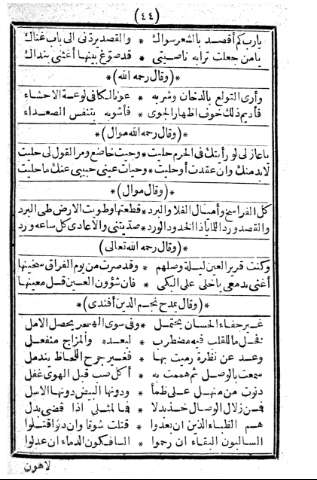 (٤٤)
يارب كم أقصد بالشعر سواك * والقصد يردنى الى باب غناك
يا من جعلت ترابه ناصيتى * قد صوّغ بينها أغثنى بنداك
*(وقال رحمه الله)*
وأرى التولع بالدخان وشربه * عونا لكافى لوعة الاحشاء
فأديم ذلك خوف اظهار الجوى * فأشوبه بتنفس الصعداء
*(وقال رحمه الله موال)*
يا عازلى لو رأيتك فى الحرم حليت * وجيت خاضع ومر القول لى حليت
لابد منك وان عقدت أو حليت * وحيات عينى حبيبى عنك ما حليت
*(وقال موال)*
كل الفراسخ وأميال الفلا والبرد * قطعتها وطويت الارض طى البرد
والقصد ورد اللياذ الخدود الورد * صد يتنى والاعادى كل ساعه ورد
*(وقال رحمه الله تعالى)*
وكنت قرير العين ليلة وصلهم * وقد صرت من يوم الفراق سخينها
أغثنى بدمعى يا خلى على البكى * فان شؤون العين قل معينها
*(وقال يمدح نجم الدين أفندى)*
غير جفاء الحسان يحتمل * وفى سوى الهجر يحصل الامل
فخل ما للقلب فيه مضطرب * لبعده والمزاج منفعل
وعد عن نظرة رميت بها * فغير جرح اللحاظ يندمل
سمعت بالوصل ثم همت به * أكل صب قبل الهوى غفل
دنوت من منهل على ظمأ * ودونها البيض دونها الاسل
فمن زلال الوصال خذ بدلا * فما لمثلى اذا قضى بدل
هم الظباء الذين ان بعدوا * قتلت شوقا وان دنوا قتلوا
السالبون البقاء ان رحموا * السافكون الدماء ان عدلوا
لاهون